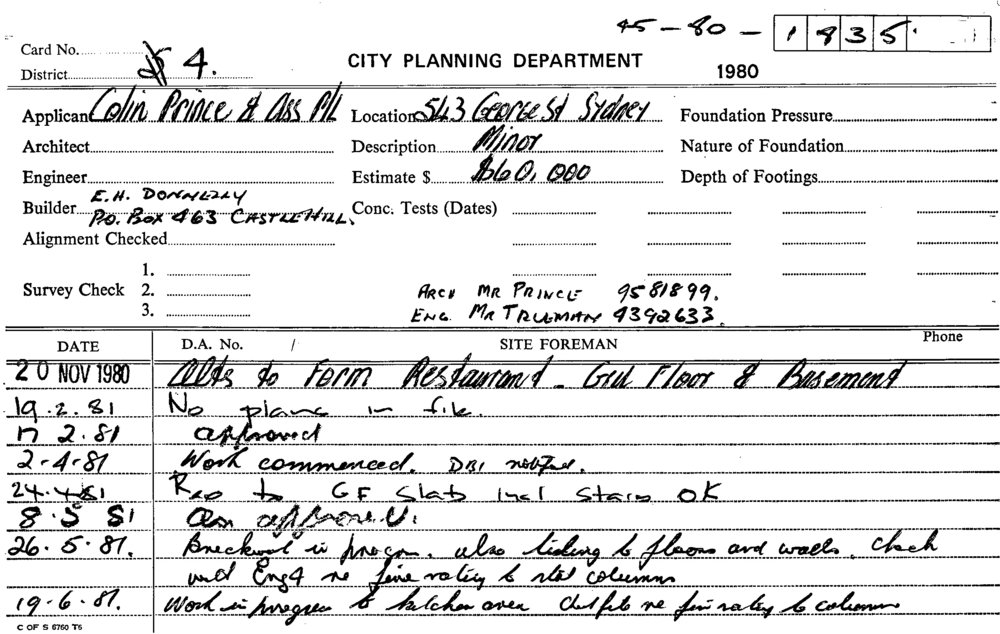 45-80-1835
Card No.
District 4.
CITY PLANNING DEPARTMENT
1980
Applicant Colin Prince & Ass P/L Location 543 George St Sydney Foundation Pressure
Architect Description Minor Nature of Foundation
Engineer Estimate $ $60,000 Depth of Footings
E.H. DONNELLY
Builder P.O. BOX 463 CASTLE HILL. Conc. Tests (Dates)
Alignment Checked
1.
Survey Check 2.
3.
ARCH MR PRINCE 9581899.
ENG. MR TRUEMAN 4392633.
DATE D.A. No. / SITE FOREMAN Phone
20 NOV 1980 Alts to Form Restaurant - Grd Floor & Basement
19.2.81 No plans in file.
2.81 approved
2-4-81 Work commenced. DBI notified.
24.4.81 Reo to GF Slab incl Stairs OK
8.5 81 approved.
26.5.81. Brickwork in progress. also tiling to floors and walls. check
with Eng4 re fire rating to steel columns
19-6-81. Work in progress to kitchen area re fire rating to columns
C OF S 6760 T6